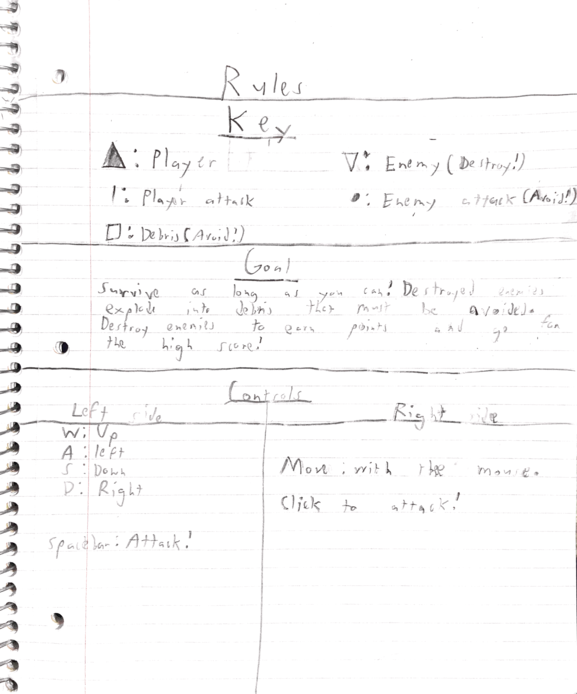 Rules
Key
▲: Player
▽: Enemy (Destroy!)
|: Player attack
•: Enemy attack (Avoid!)
□: Debris (Avoid!)
Goal
Survive as long as you can! Destroyed enemies
explode into debris that must be avoided.
Destroy enemies to earn points and go for
the high score!
Controls
Left side
Right side
W: Up
A: left
S: Down
D: Right
Move: with the mouse.
Click to attack!
Spacebar: Attack!